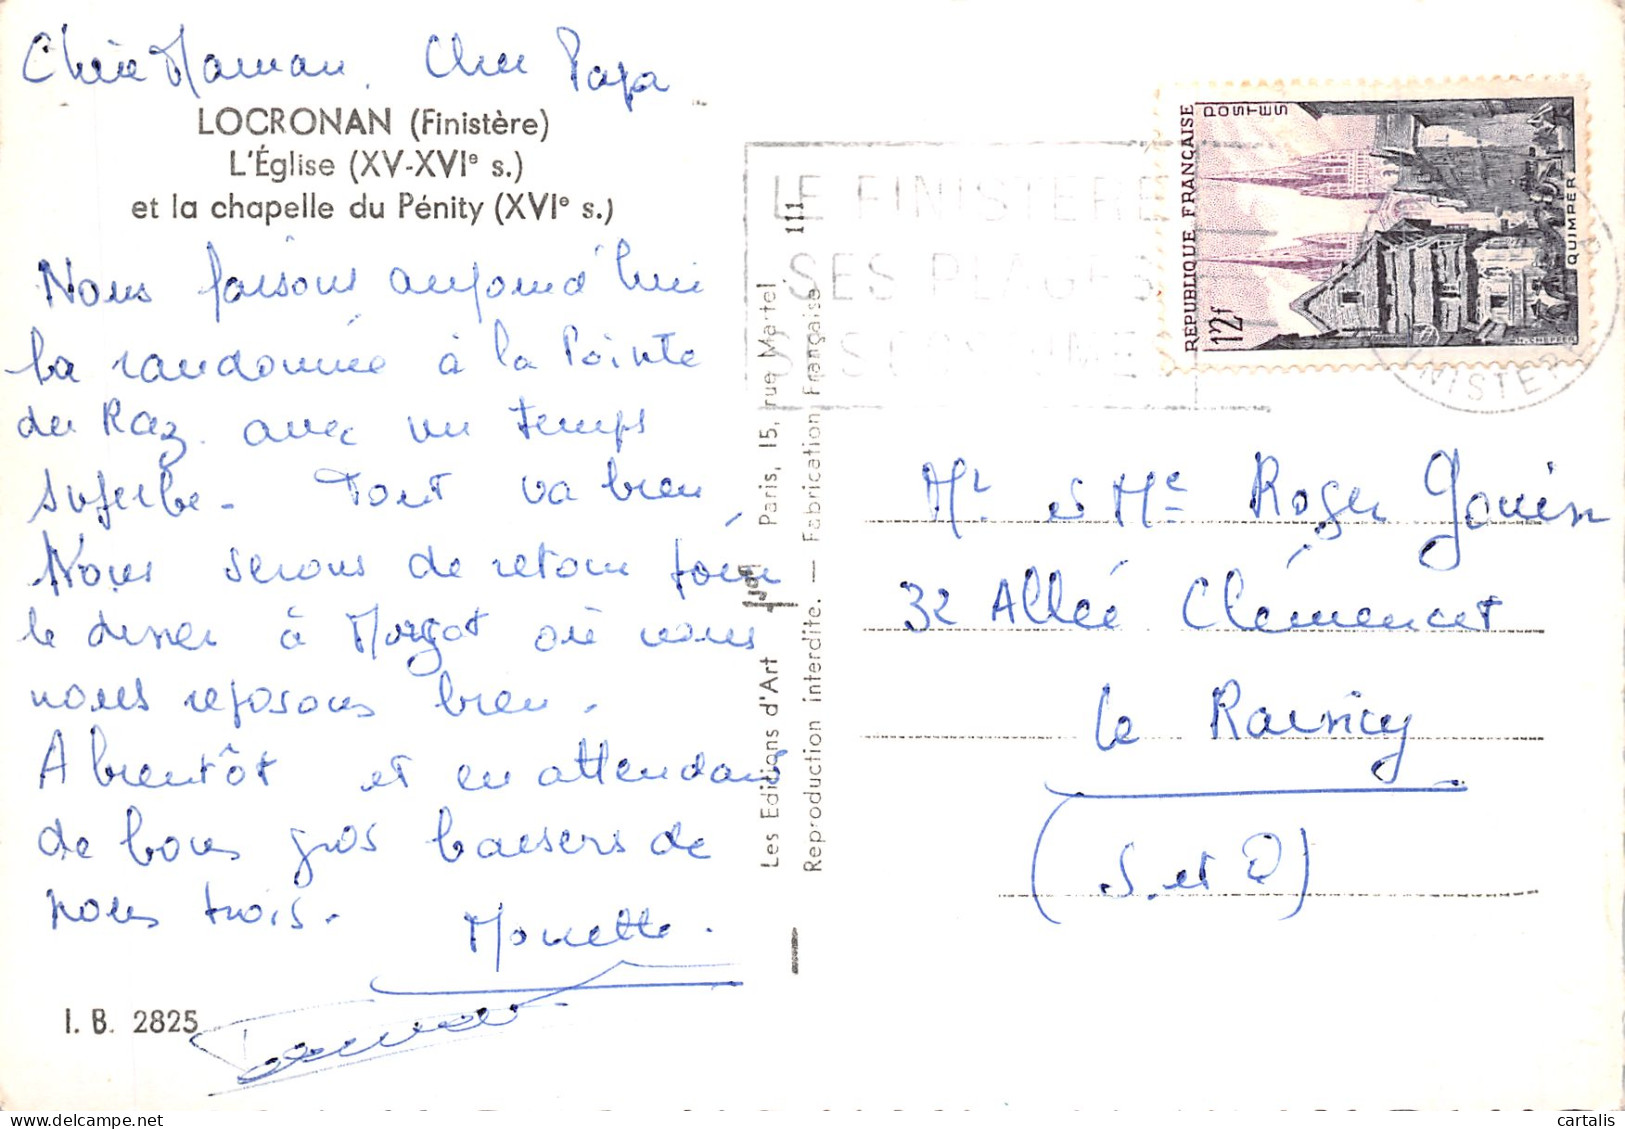 Chère Maman, Cher Papa
LOCRONAN (Finistère)
L'Église (XV-XVIe s.)
et la chapelle du Pénity (XVIe s.)
Nous faisons aujourd'hui
la randonnée à la Pointe
du Raz avec un temps
superbe. Tout va bien,
Nous serons de retour pour
le dîner à Morgat où nous
nous reposons bien.
A bientôt et en attendant
de bons gros baisers de
nous trois.
Monette.
I. B. 2825
Les Editions d'Art Paris, 15, rue Martel
Reproduction interdite. — Fabrication Française
111
LE FINISTERE
SES PLAGES
RÉPUBLIQUE FRANÇAISE
POSTES
12f
QUIMPER
Mr et Me Roger Gouin
32 Allée Clémencet
Le Raincy
(S. et O)
cartalis